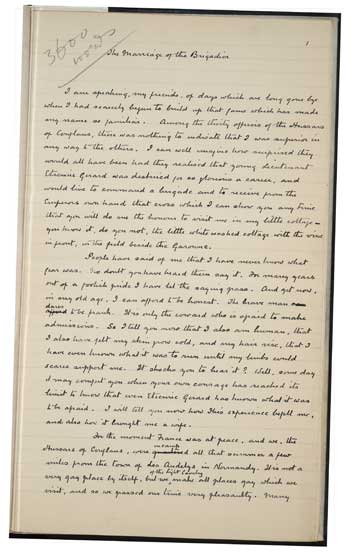 3600
words
1
The Marriage of the Brigadier
I am speaking, my friends, of days which are long gone bye
when I had scarcely begun to build up that fame which has made
my name so familiar. Among the thirty officers of the Hussars
of Conflans, there was nothing to indicate that I was superior in
any way to the others. I can well imagine how surprised they
would all have been had they realised that young Lieutenant
Etienne Gerard was destined for so glorious a career, and
would live to command a brigade and to receive from the
Emperor's own hand that cross which I can show you any time
that you will do me the honour to visit me in my little cottage -
you know it, do you not, the little white washed cottage with the vine
in front, in the field beside the Garonne.
People have said of me that I have never known what
fear was. No doubt you have heard them say it. For many years
out of a foolish pride I have let the saying pass. And yet now,
in my old age, I can afford to be honest. The brave man
dares
afford to be frank. It is only the coward who is afraid to make
admissions. So I tell you now that I also am human, that
I also have felt my skin grow cold, and my hair rise, that I
have even known what it was to run until my limbs could
scarce support me. It shocks you to hear it? Well, some day
it may comfort you when your own courage has reached its
limit to know that even Etienne Gerard has known what it was
to be afraid. I will tell you now how this experience befell me,
and also how it brought me a wife.
For the moment France was at peace, and we, the
Hussars of Conflans, were in camp all that summer a few
miles from the town of Les Andelys in Normandy. It is not a
very gay place by itself, but we of the Light Cavalry make all places gay which we
visit, and so we passed our time very pleasantly. Many